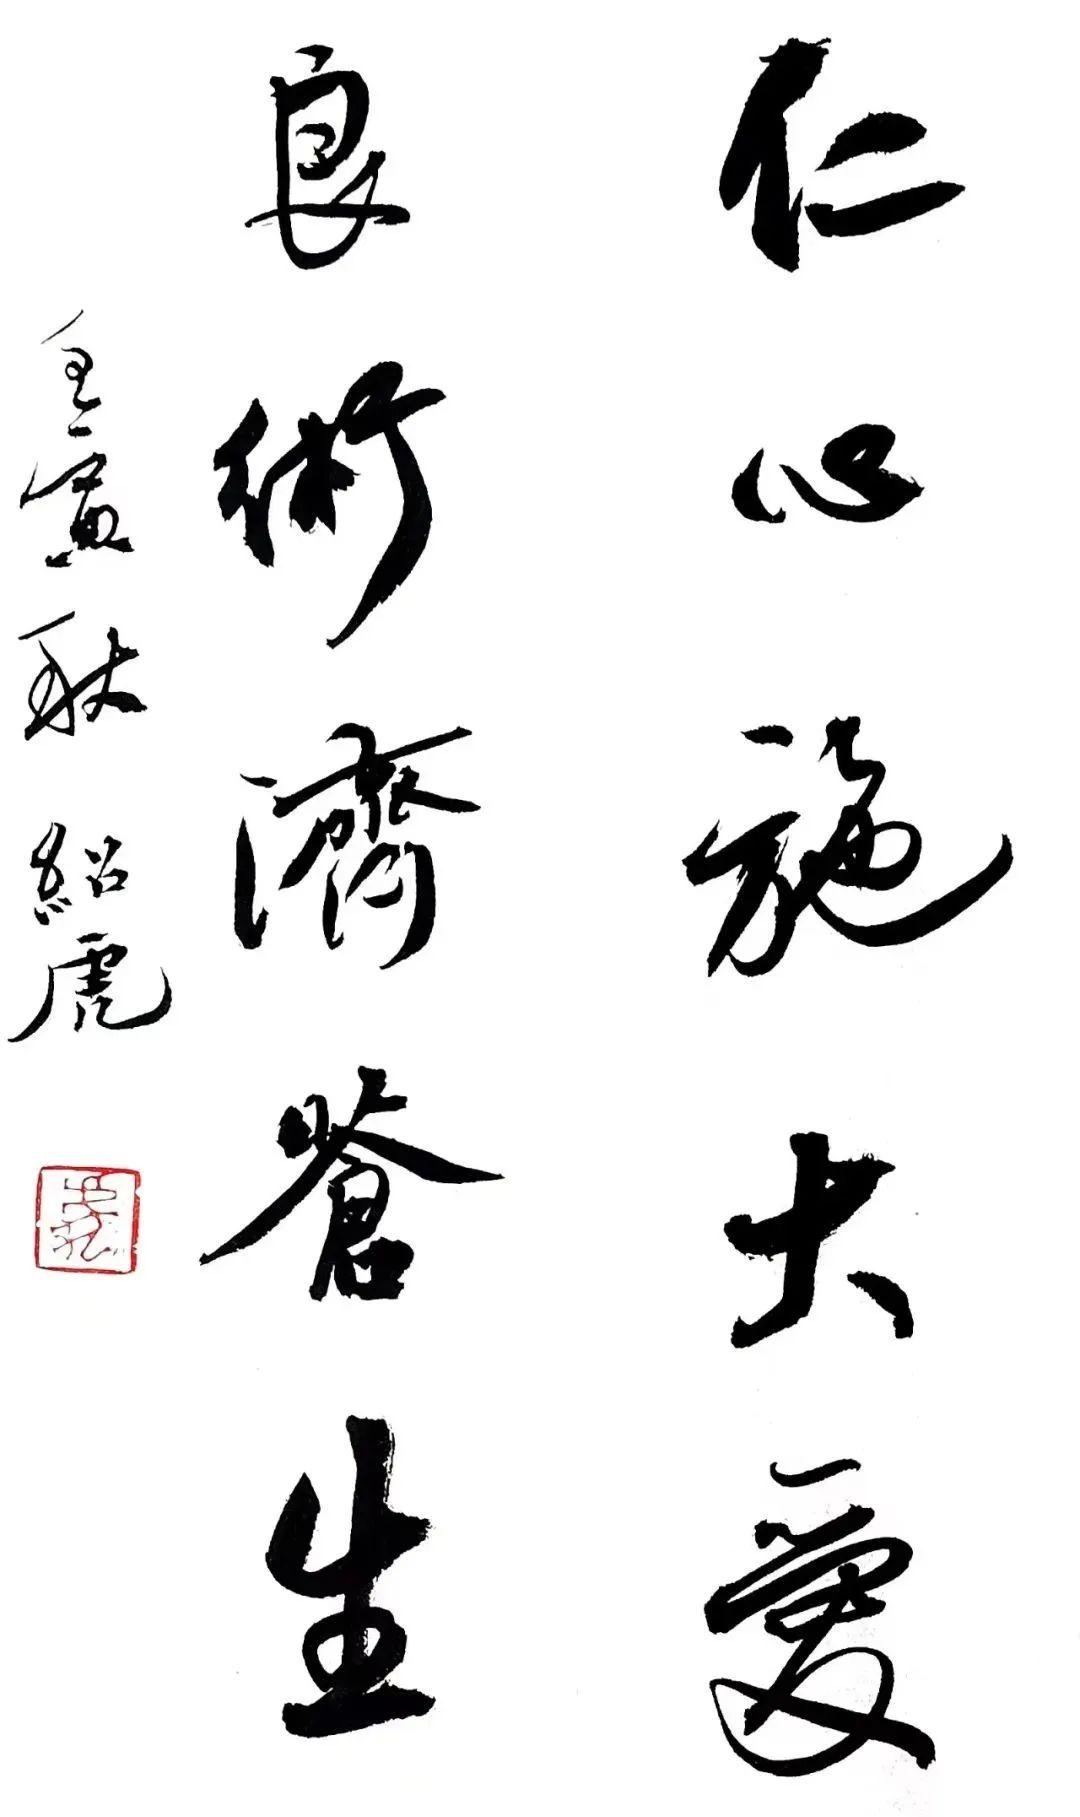 仁心施大愛
良術濟蒼生
壬寅秋 紹虎